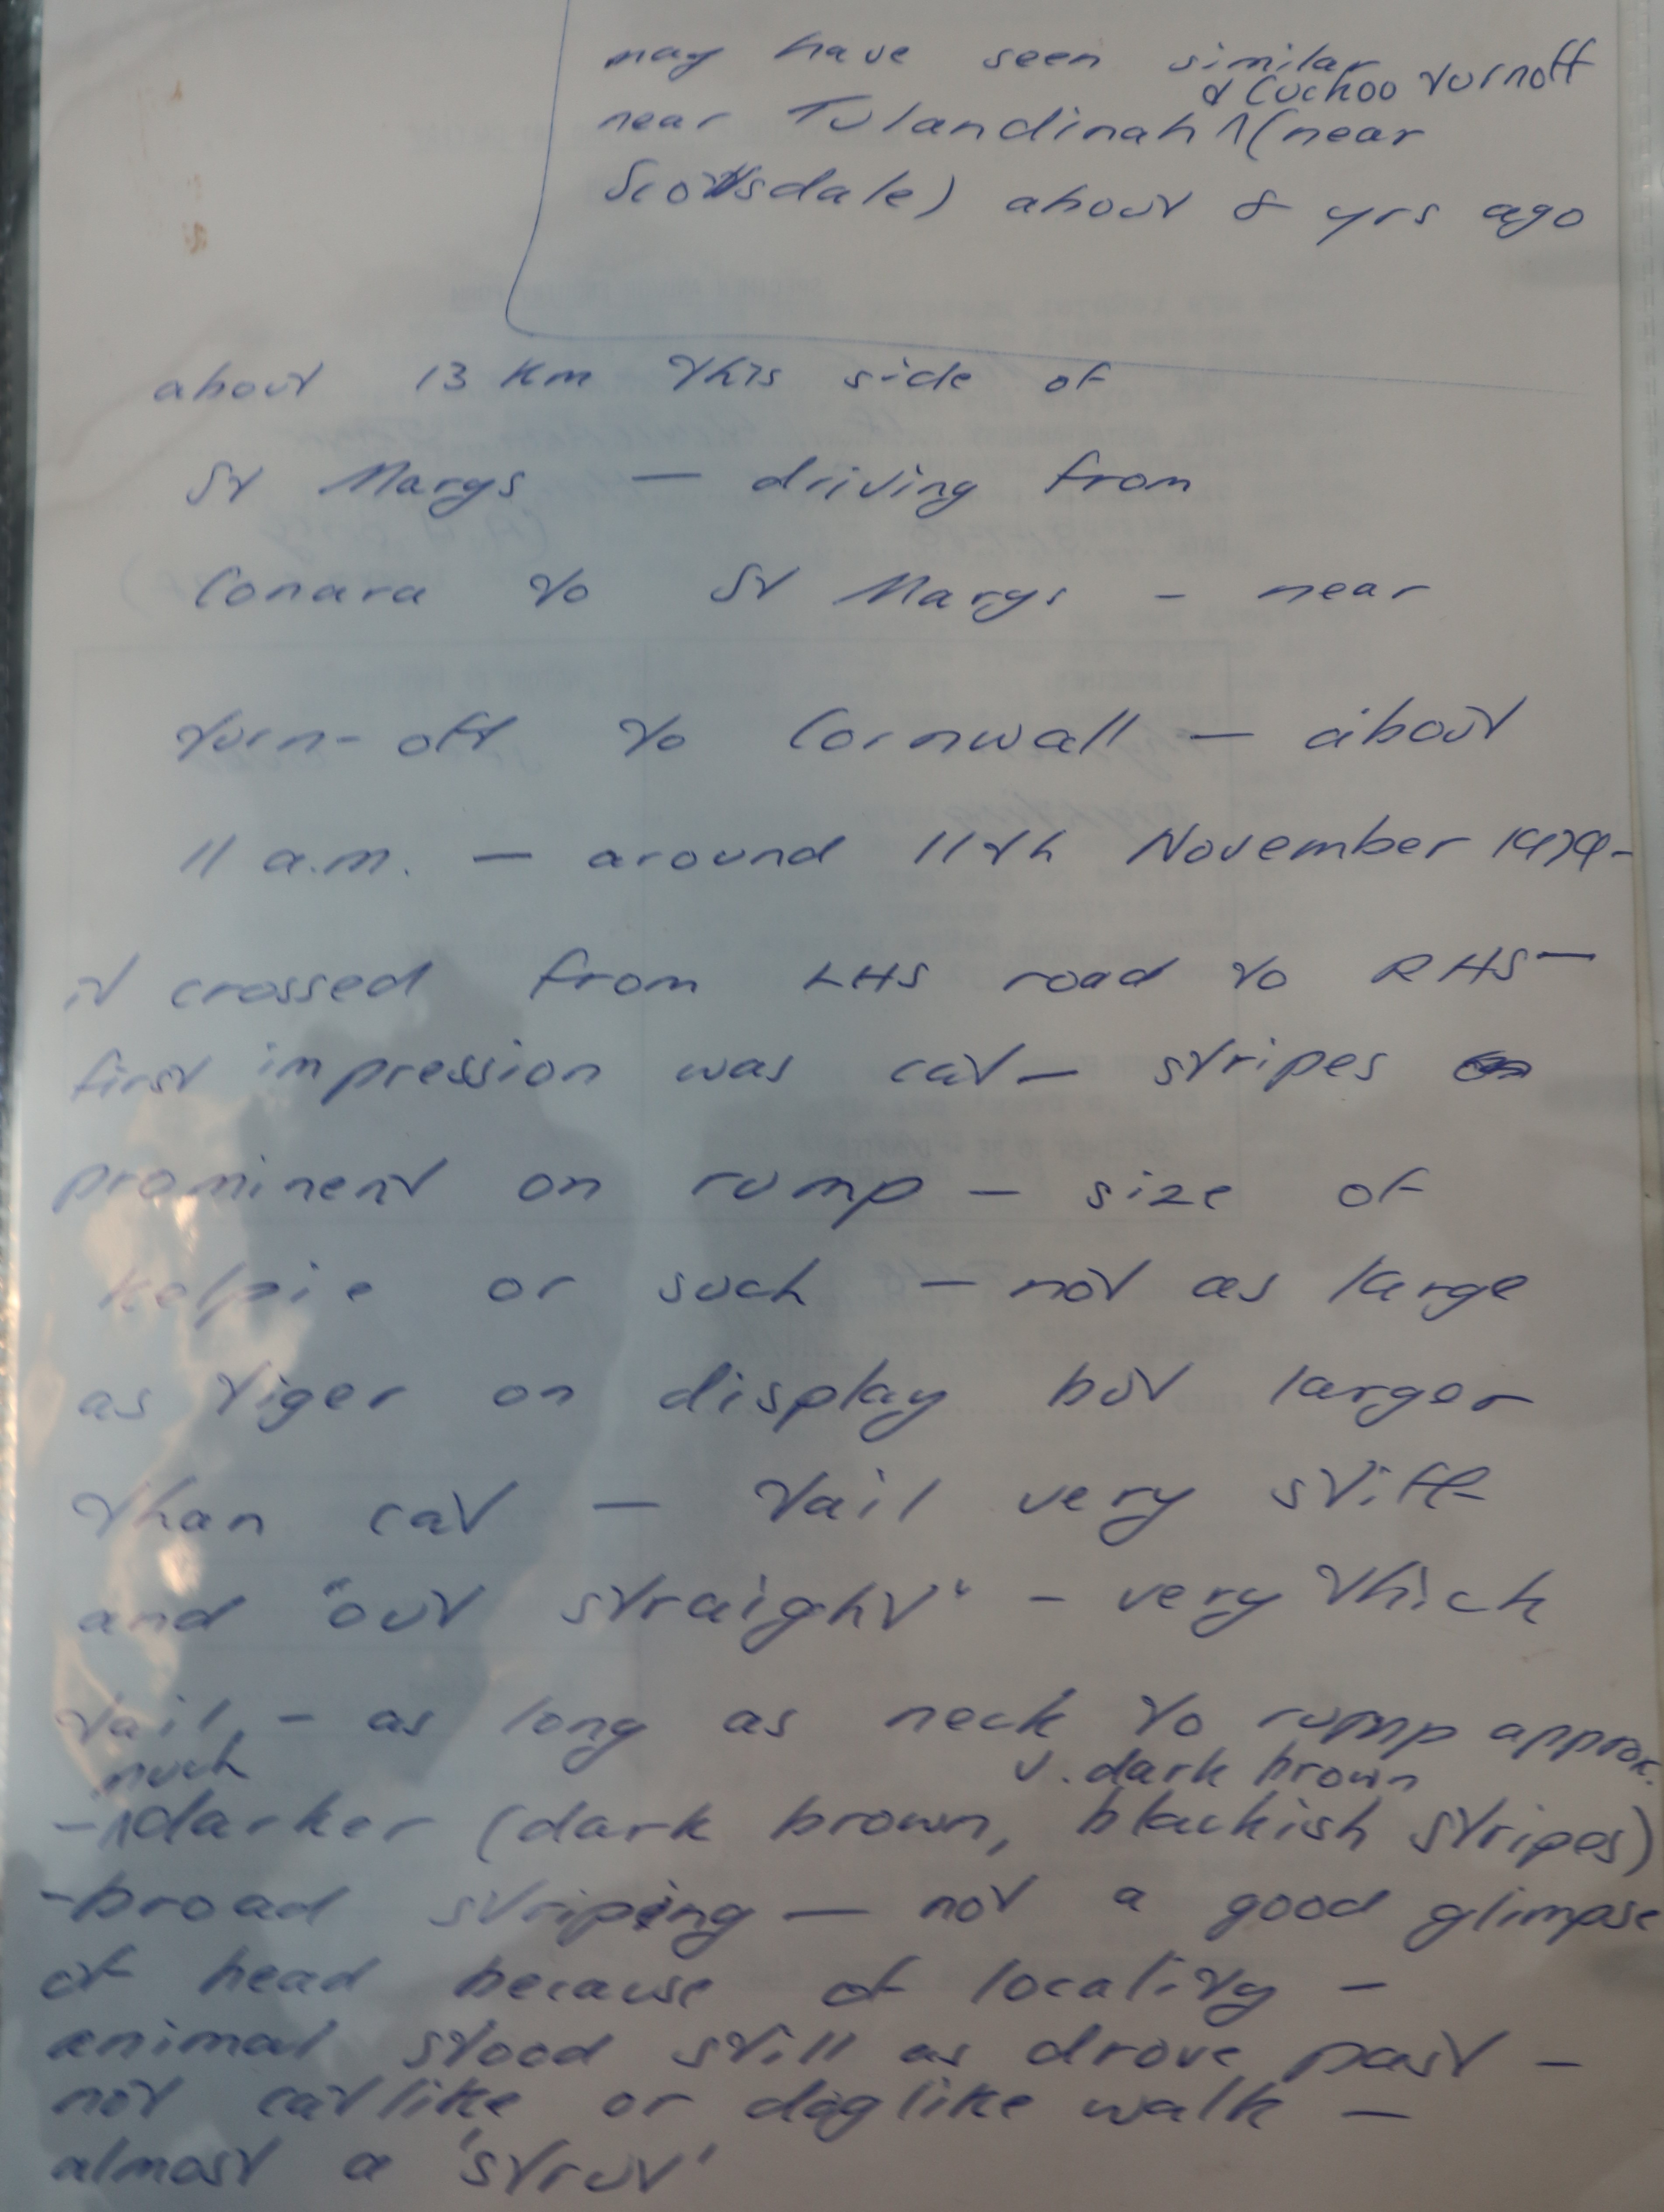 may have seen similar
& Cuckoo turnoff
near Tulandinah ^ (near
Scottsdale) about 8 yrs ago
about 13 Km this side of
St Marys — driving from
Conara to St Marys - near
turn-off to Cornwall — about
11 a.m. — around 11th November 1979-
it crossed from LHS road to RHS —
first impression was cat — stripes
prominent on rump — size of
kelpie or such — not as large
as tiger on display but larger
than cat — tail very stiff
and "out straight" - very thick
tail - as long as neck to rump approx.
much v. dark brown
-^darker (dark brown, blackish stripes)
-broad striping — not a good glimpse
of head because of locality -
animal stood still as drove past -
not catlike or doglike walk —
almost a 'strut'